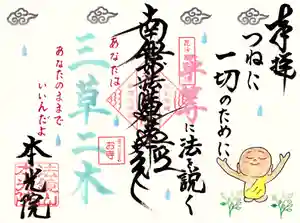 奉拝
つねに
一切のために
平等に法を説く
南無妙法蓮華経
あなたは
三草二木
あなたのままで
いいんだよ
本光院